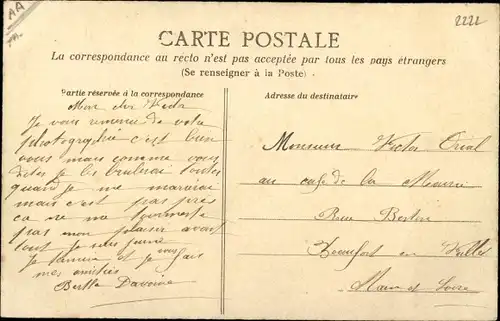 AA
2222
CARTE POSTALE
La correspondance au recto n'est pas acceptée par tous les pays étrangers
(Se renseigner à la Poste)
Partie réservée à la correspondance
Adresse du destinataire
Mon cher Victor
Je vous remercie de votre
photographie c'est bien
vous mais comme vous
dites je les brulerai toutes
quand je me marierai
mais c'est pas près
ca ne me tourmente
pas mon plaisir avant
tout je suis jeune
Je termine et je vous fais
mes amitiés
Berthe
Monsieur Victor
au café de la Mairie
Rue
Beaufort en Vallée
Maine et Loire